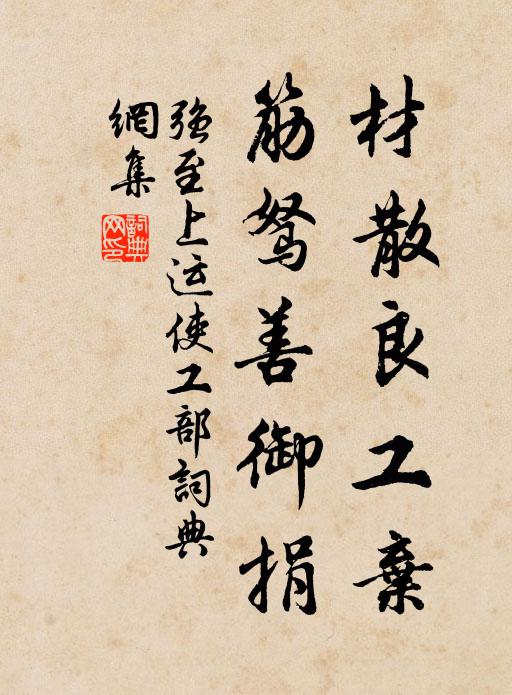 材散良工棄
筋驽善御捐
强至上运使工部詞典
網集
詞典
网印